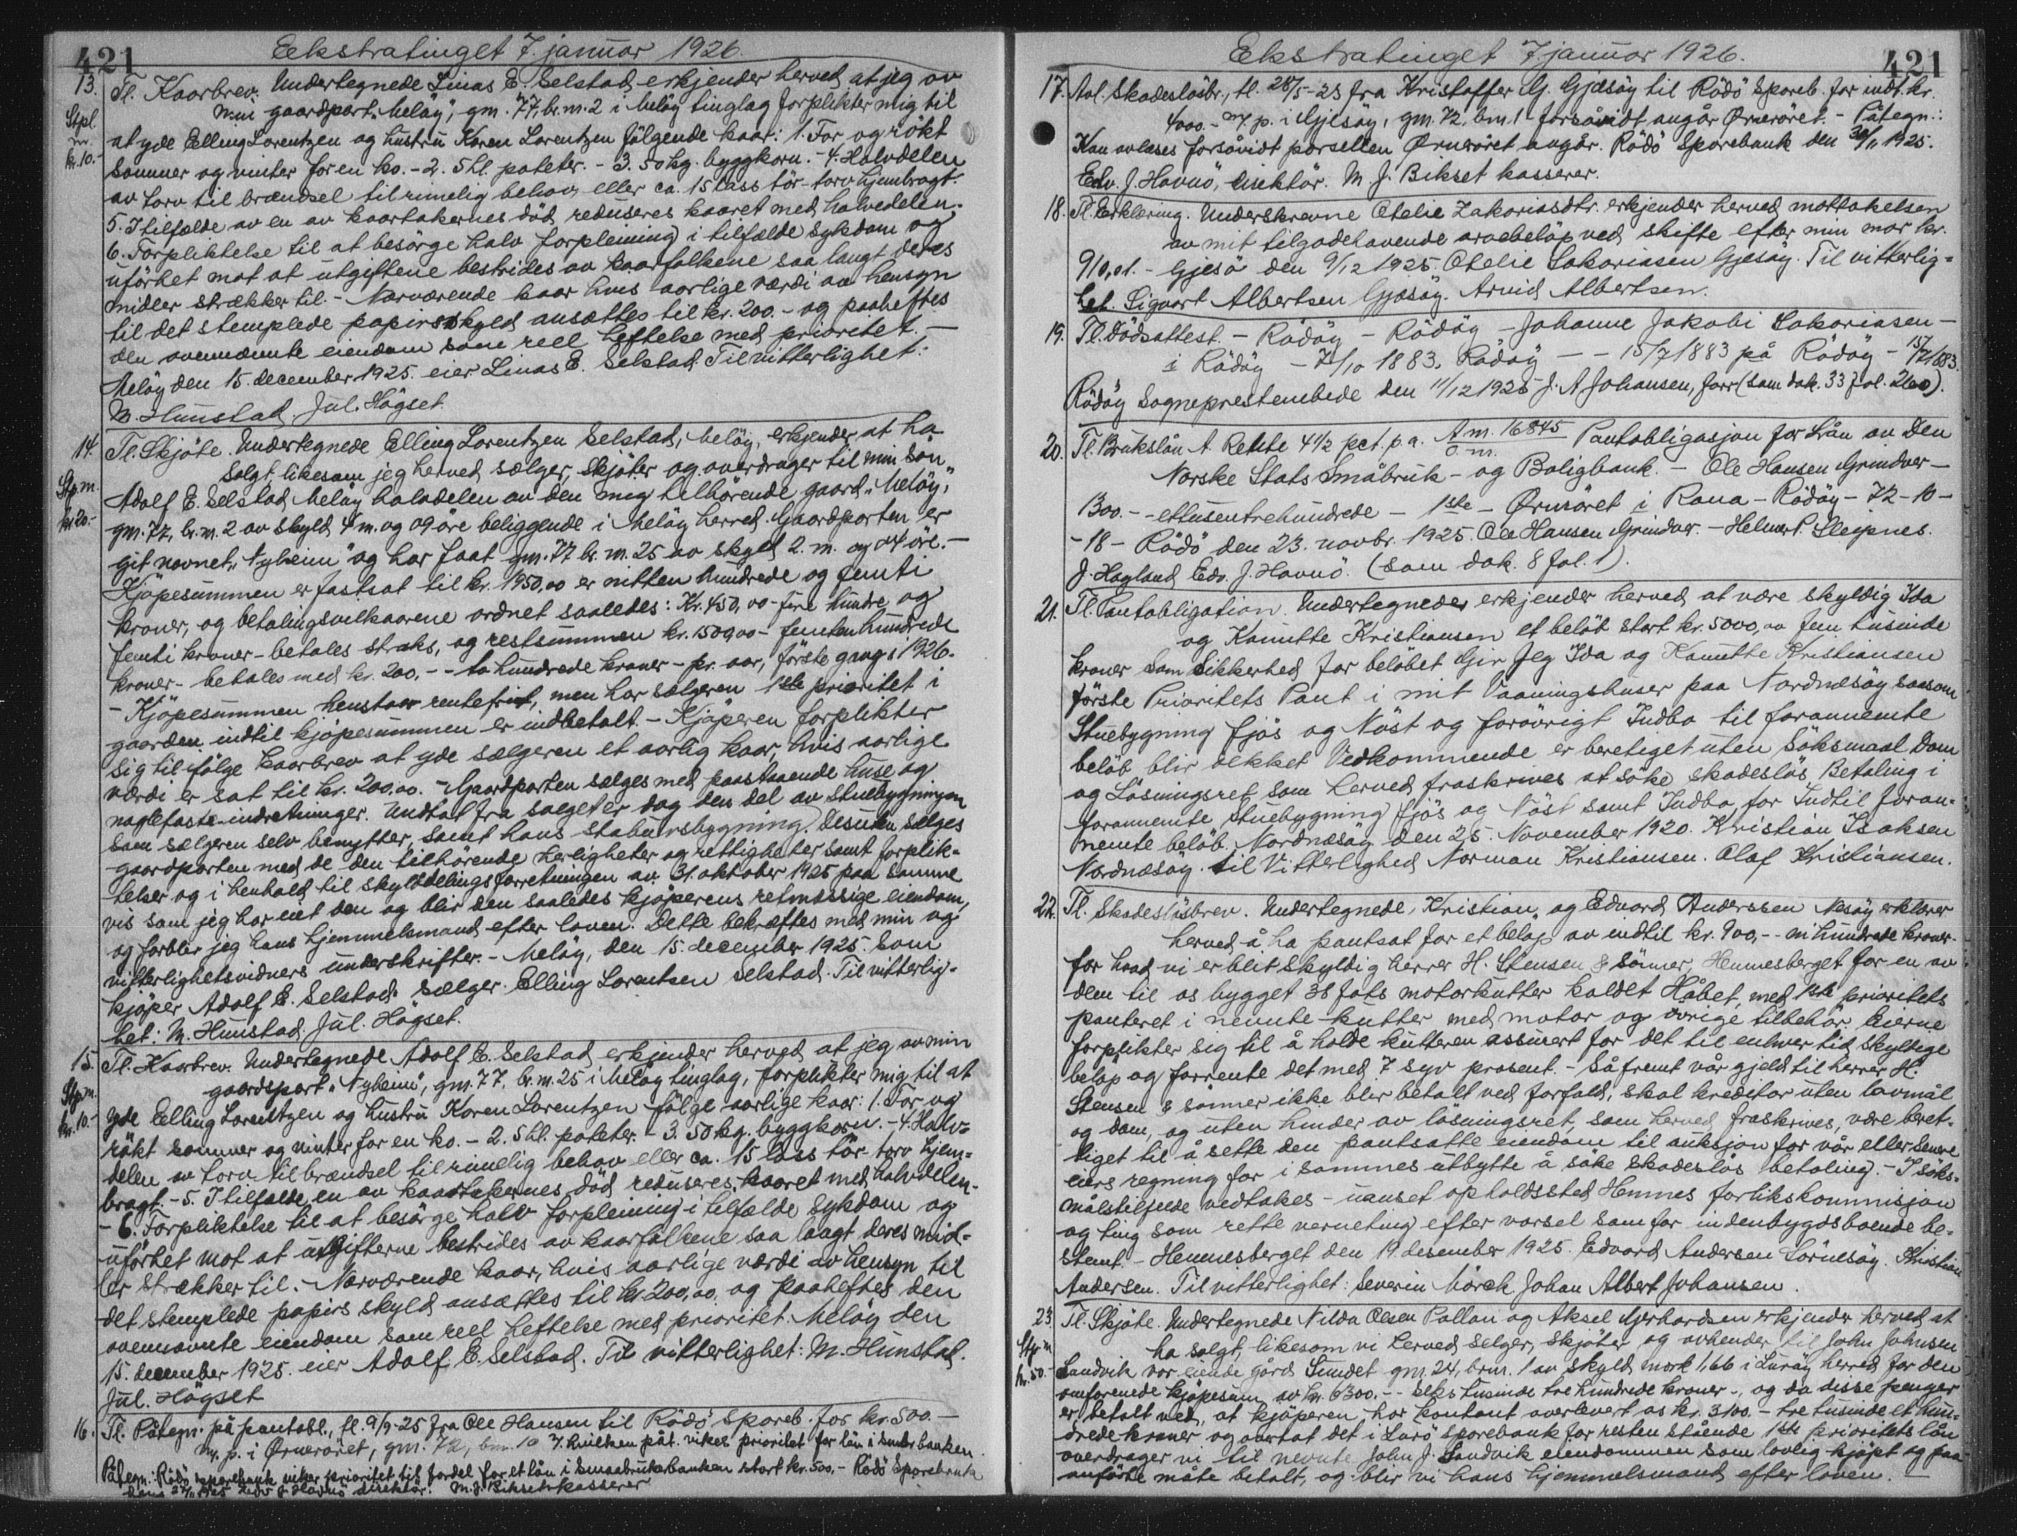 421
Ekstratinget 7. januar 1926.
13. Tl. Kaarbrev. Undertegnede Linas E. Selstad erkjender herved at jeg av
min gaardpart „Meløy", gm. 77, br.m. 2 i Meløy tinglag forplikter mig til
Stpl.
m.
kr. 10.-
at yde Elling Lorentzen og hustru Karen Lorentzen følgende kaar: 1. For og røkt
sommer og vinter for en ko. - 2. 5 hl. poteter. - 3. 50 kg. byggkorn. - 4. Halvdelen
av torv til brændsel til rimelig behov, eller ca. 15 lass tør torv hjembragt.
5. I tilfælde av en av kaartakernes død reduseres kaaret med halvdelen.
6. Forpliktelse til at besørge halv forpleining i tilfælde sykdom og
uførhet mot at utgiftene bestrides av kaarfolkene saa langt deres
midler strækker til. - Nærværende kaar hvis aarlige værdi av hensyn
til det stemplede papirs skyld ansættes til kr. 200.- og paaheftes
den ovennævnte eiendom som reel heftelse med prioritet. -
Meløy den 15. december 1925. eier Linas E. Selstad. Til vitterlighet:
M. Hunstad. Jul. Høgset.
14. Tl. Skjøte. Undertegnede Elling Lorentzen Selstad, Meløy, erkjender at ha
solgt, likesom jeg herved sælger, skjøter og overdrager til min søn
Stp.m.
kr. 20.-
Adolf E. Selstad Meløy halvdelen av den mig tilhørende gaard „Meløy",
gm. 77, br.m. 2 av skyld 4 m. og 09 øre beliggende i Meløy herred. Gaardparten er
git navnet „Nyheim" og har faat gm. 77 br.m. 25 av skyld 2. m. og 04 øre. -
Kjøpesummen er fastsat til kr. 1950,00 er nitten hundrede og femti
kroner, og betalingsvilkaarene ordnet saaledes: Kr. 450,00 - fire hundre og
femti kroner - betales straks, og restsummen kr. 1500,00 - femten hundrede
kroner - betales med kr. 200, - - to hundrede kroner - pr. aar, første gang i 1926.
- Kjøpesummen henstaar rentefrit, men har sælgeren 1ste prioritet i
gaarden indtil kjøpesummen er indbetalt. - Kjøperen forplikter
sig til følge kaarbrev at yde sælgeren et aarlig kaar, hvis aarlige
værdi er sat til kr. 200,00. - Gaardparten sælges med paastaaende huse og
naglefaste indretninger. Undtat fra salget er dog den del av stuebygningen
som sælgeren selv benytter, samt hans stabursbygning. Desuten sælges
gaardparten med de den tilhørende herligheter og rettigheter samt forplik-
telser og i henhold til skylddelingsforretningen av 31. oktober 1925 paa samme
vis som jeg har eiet den og blir den saaledes kjøperens retmæssige eiendom,
og forblir jeg hans hjemmelsmand efter loven. Dette bekræftes med min og
vitterlighetsvidners underskrifter. - Meløy, den 15. december 1925. Som
kjøper Adolf E. Selstad. Sælger. Elling Lorentsen Selstad. Til vitterlig-
het: M. Hunstad. Jul. Høgset.
15. Tl. Kaarbrev. Undertegnede Adolf E. Selstad erkjender herved at jeg av min
gaardspart „Nyheim", gm. 77, br.m. 25 i Meløy tinglag, forplikter mig til at
Stp.m.
kr. 10.-
yde Elling Lorentzen og hustru Karen Lorentzen følge aarlige kaar: 1. For og
røkt sommer og vinter for en ko. - 2. 5 hl. poteter. - 3. 50 kg. byggkorn. - 4. Halv-
delen av torv til brændsel til rimelig behov eller ca. 15 lass tør torv hjem-
bragt. - 5. I tilfælde en av kaartakernes død reduseres kaaret med halvdelen.
- 6. Forpliktelse til at besørge halv forpleining i tilfælde sykdom og
uførhet mot at utgifterne bestrides av kaarfolkene saa langt deres mid-
ler strækker til. - Nærværende kaar, hvis aarlige værdi av hensyn til
det stemplede papirs skyld ansættes til kr. 200,00. og paaheftes den
ovennævnte eiendom som reel heftelse med prioritet. Meløy den
15. december 1925. eier Adolf E. Selstad. Til vitterlighet: M. Hunstad.
Jul. Høgset
16. Tl. Påtegn. på pantobl., tl. 9/9-25 fra Ole Hansen til Rödö Spareb. for kr. 500.-
m. p. i Ørnerøret, gm. 72, bm. 10 hvilken påt. viker prioritet for lån i Småbr.banken.
Påtegn.: Rödö sparebank viker prioritet til fordel for et lån i Småbrukerbanken stort kr. 500,- Rödö Sparebank
Edv. J. Havnö direktør. M. J. Bikset kasserer
421
Ekstratinget 7 januar 1926.
17. Avl. Skadesløsbr., tl. 28/5-23 fra Kristoffer G. Gjæsøy til Rödö Spareb. for indt. kr.
4000.- m p. i Gjesøy, gm. 72, bm. 1 forsåvidt angår Ørnerøret. - Påtegn.:
Kan avlæses forsåvidt parsellen Ørnerøret angår. Rödö Sparebank den 30/11 1925.
Edv. J. Havnö, direktör. M. J. Bikset kasserer.
18. Tl. Erklæring. Underskrevne Otelie Zakariasdtr. erkjender herved mottakelsen
av mit tilgodehavende arvebeløp ved skifte efter min mor kr.
910,01. - Gjesø den 9/12 1925. Otelie Sakariasen Gjesøy. Til vitterlig-
het. Sigvart Albertsen Gjæsøy. Arvid Albertsen.
19. Tl. Dødsattest. - Rødøy - Rødøy - Johanne Jakobi Sakariasen -
i Rødøy - 7/10 1883. Rødøy - - 15/7 1883 på Rødøy - 15/7 1883.
Rødøy Sogneprestembede den 11/12 1925 J. A Johansen, forr. (som dok. 33 fol. 260).
20. Tl. Brukslån A Rente 4 1/2 pct. p.a. A m. 16845 Pantobligasjon for Lån av Den
Norske Stats Småbruk - og Boligbank. - Ole Hansen Grindver -
1300.- - ettusentrehundrede - 1ste - Ørnerøret i Rana - Rødøy - 72 - 10 -
- 18 - Rödö den 23. novbr. 1925. Ole Hansen Grindver. - Helmert Sleipnes.
J. Hagland Edv. J. Havnö. (som dok. 8 fol. 1).
21. Tl. Pantobligation. Undertegnedes erkjender herved at være skyldig Ida
og Kanutte Kristiansen et beløb stort kr. 5000,00 fem tusinde
kroner Som Sikkerhed for beløbet Gir Jeg Ida og Kanutte Kristiansen
første Prioritets Pant i mit Vaaningshuser paa Nordnæsøy saasom
Stuebygning fjøs og Nøst og forøvrigt Indbo til forannemte
beløb blir dekket Vedkommende er beretiget uten Søksmaal Dom
og Løsningsret som herved fraskrives at søke skadesløs Betaling i
forannemte Stuebygning fjøs og Nøst samt Indbo for Indtil foran-
nemte beløb. Nordnæsøy den 25. November 1920. Kristian Isaksen
Nordnæsøy. til Vitterlighed Norman Kristiansen. Olaf Kristiansen.
22. Tl. Skadesløsbrev. Undertegnede, Kristian og Edvard Anderssen Næsøy erklærer
herved å ha pantsat for et beløp av indtil kr. 900,- - ni hundrede kroner -
for hvad vi er blit skyldig herrer H. Stensen & Sønner, Hemnesberget for en av
dem til os bygget 38 fots motorkutter kaldet Håbet, med 1ste prioritets
panteret i nemte kutter med motor og øvrige tilbehør. Eierne
forplikter sig til å holde kutteren assurert for det til enhver tid skyldige
beløp og forrente det med 7 syv prosent. - Såfremt vår gjeld til herrer H.
Stensen & sønner ikke blir betalt ved forfald, skal kreditor uten lovmål
og dom, og uten hinder av løsningsret, som herved fraskrives, være beret-
tiget til å sette den pantsatte eiendom til auksjon for vår eller senere
eiers regning for i sammes utbytte å søke skadesløs betaling. - I søks-
målstilfelde vedtakes - uanset opholdssted Hemnes forlikskommisjon
og ting som rette verneting efter varsel som for indenbygdsboende be-
stemt. - Hemnesberget den 19. desember 1925. Edvard Andersen Sörnesøy. Kristian
Andersen. Til vitterlighet: Severin Mörck Johan Albert Johansen.
23. Tl. Skjøte. Undertegnede Nilda Olsen Pallan og Aksel Gjerhardsen erkjender herved at
Stp m
kr. 50.-
ha solgt, likesom vi herved selger, skjøter og avhender til John Johnsen
Sandvik vor eiende gård Sundet gm. 24, brm. 1 av skyld mark 1,66 i Lurøy herred for den
omforenede kjøpesum av kr. 6300.- - Seks tusinde tre hundrede kroner -, og da disse penger
er betalt ved, at kjøperen har kontant overlevert os kr. 3100 - tre tusinde et hun-
drede kroner og overtat det i Lurö sparebank for resten stående 1ste prioritets lån
overdrager vi til nevnte John J. Sandvik eiendommen som lovlig kjøpt og paa
anførte måte betalt, og blir vi hans hjemmelsmand efter loven. -